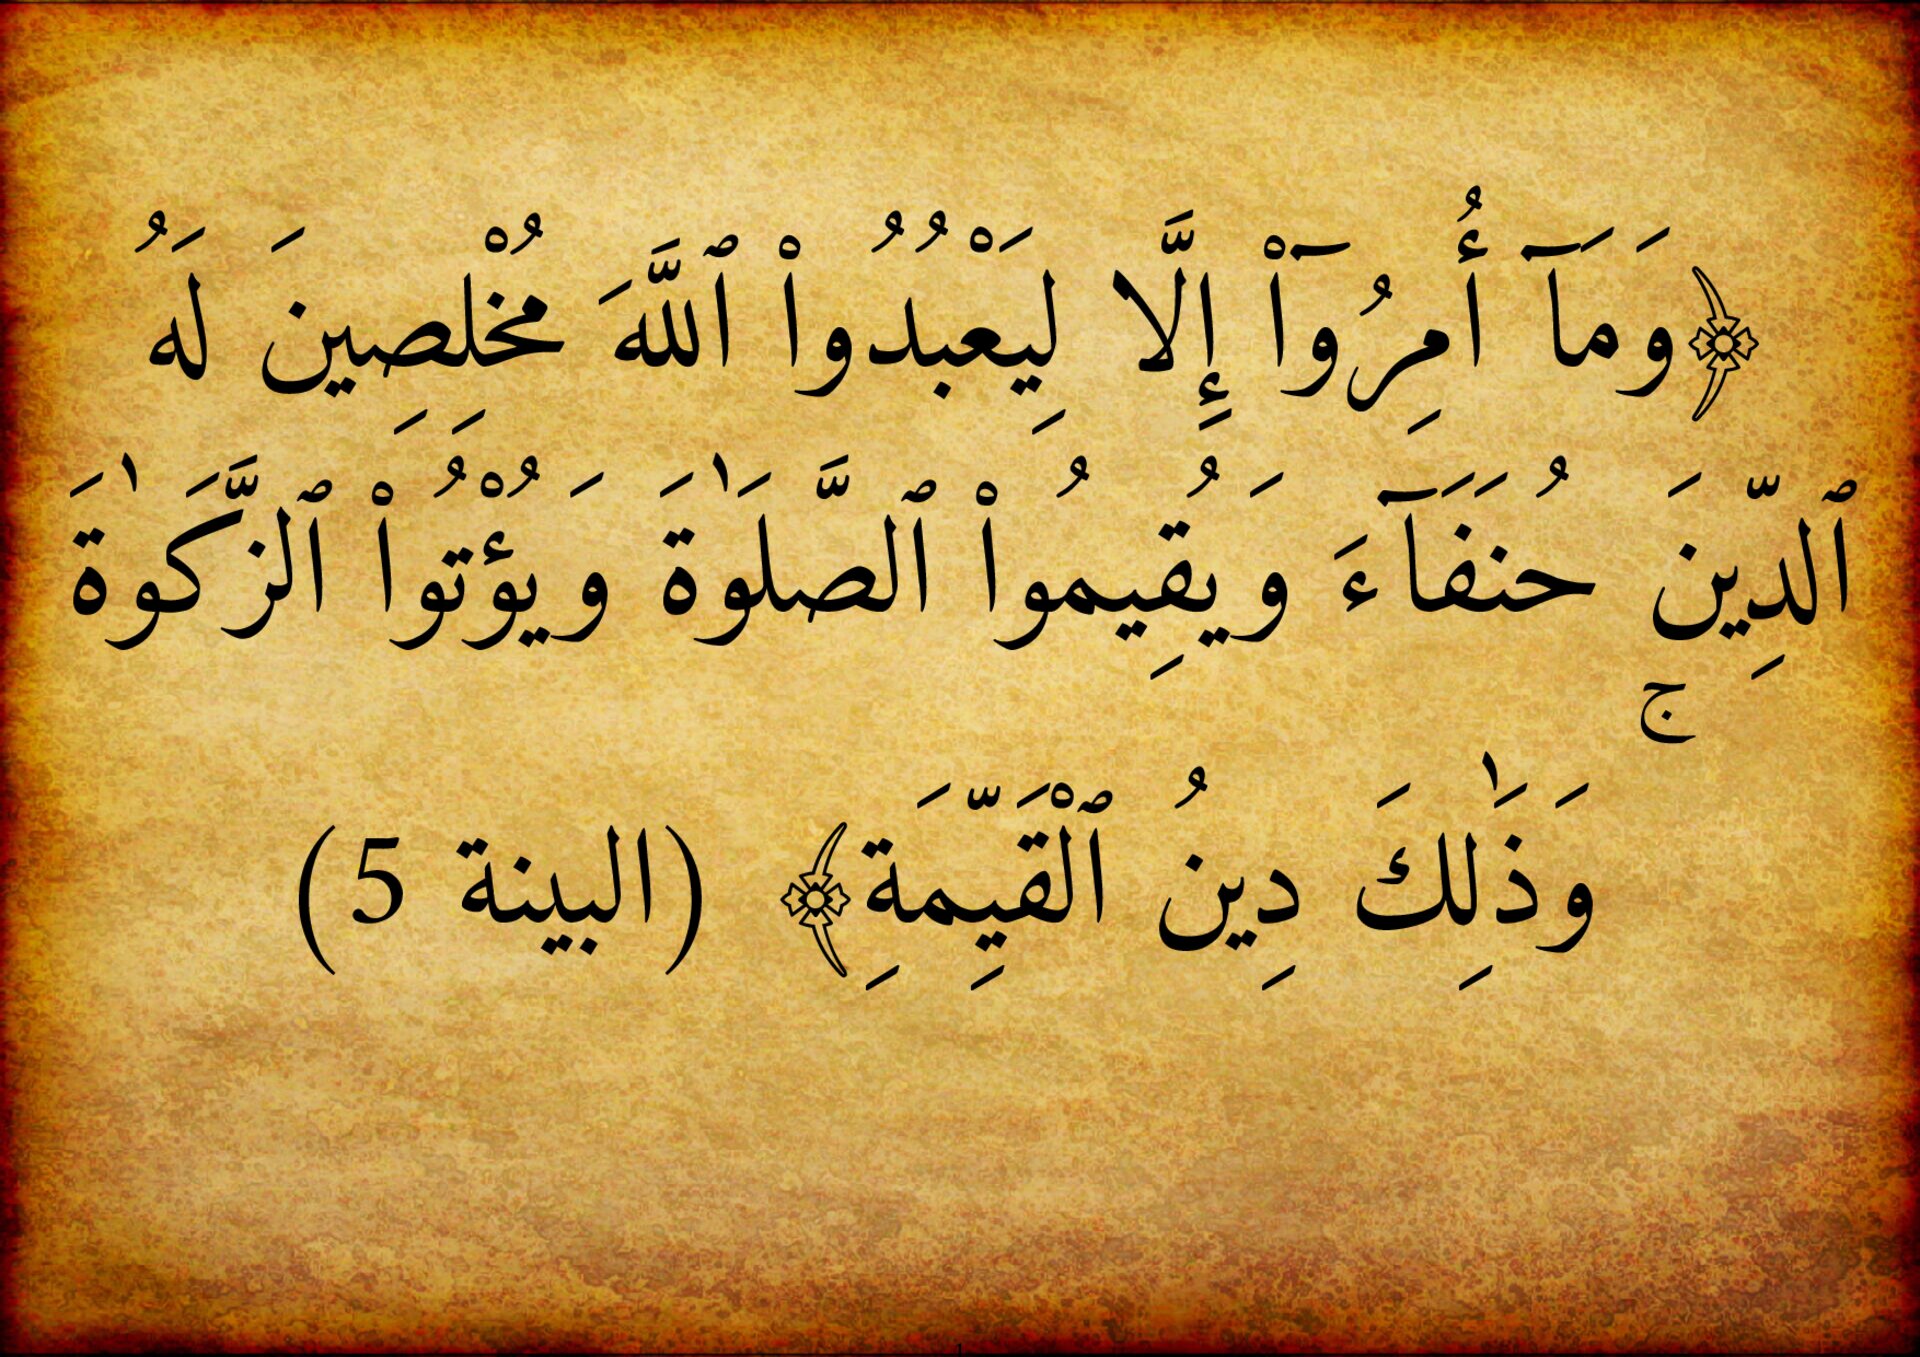 ﴿وَمَآ أُمِرُوٓا۟ إِلَّا لِيَعْبُدُوا۟ ٱللَّهَ مُخْلِصِينَ لَهُ
ٱلدِّينَ حُنَفَآءَ وَيُقِيمُوا۟ ٱلصَّلَوٰةَ وَيُؤْتُوا۟ ٱلزَّكَوٰةَ ۚ
وَذَٰلِكَ دِينُ ٱلْقَيِّمَةِ﴾ (البينة 5)
1